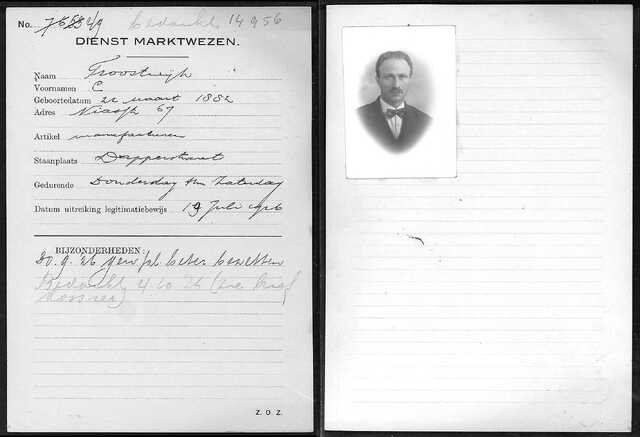 No. 2/9 bedankt 14956
DIENST MARKTWEZEN.
Naam Troostwijk
Voornamen C
Geboortedatum 22 maart 1882
Adres 67
Artikel manufacturen
Staanplaats Dapperstraat
Gedurende Donderdag t/m Zaterdag
Datum uitreiking legitimatiebewijs 19 Juli 1926
BIJZONDERHEDEN:
30.9.26 gew. pl. beter bezetten
Bedankt 4.10.26 (zie brief
Z. O. Z.